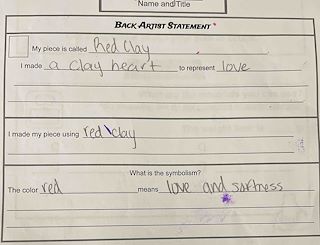 Name and Title
BACK ARTIST STATEMENT
My piece is called Red Clay
I made a clay heart to represent love
I made my piece using red clay
What is the symbolism?
The color red means love and softness